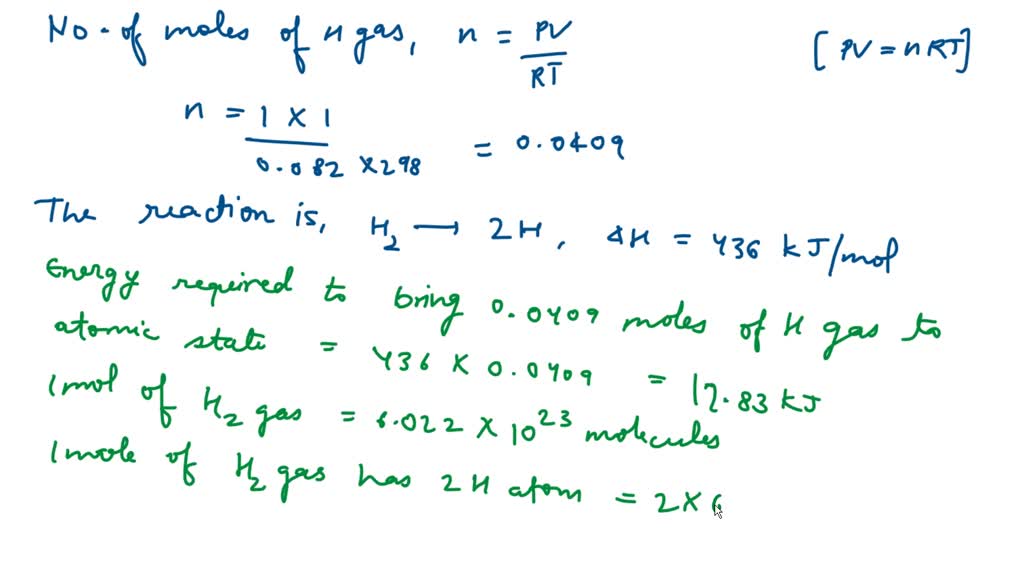 No. of moles of H gas, n = PV / RT [PV = nRT]
n = 1 X 1 / 0.082 X 298 = 0.0409
The reaction is, H₂ → 2H, ΔH = 436 kJ/mol
Energy required to bring 0.0409 moles of H gas to
atomic state = 436 X 0.0409 = 17.83 kJ
1mol of H₂ gas = 6.022 X 10²³ molecules
1mole of H₂ gas has 2H atom = 2X6